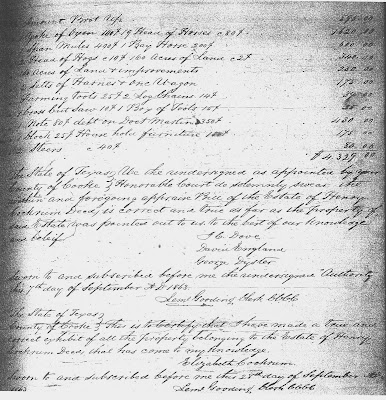 Amount Brot Up
Yoke of Oxen 100 $ 19 Head of Horses c 80 $ 1620.00
Span Mules 400 $ 1 Bay Horse 200 $ 600 00
Head of Hogs c 10 $ 160 acres of Land c 2 $
Acres of Land & improvements
Setts of Harness & One Wagon 175 00
Farming Tools 25 $ 2 Log Chains 14 $
Cross Cut Saw 10 $ 1 Box of Tools 15 $
Note 80 $ debt on Doct Martin 350 $ 430 00
Clock 25 $ House hold furniture 175 00
Steers c 40 $
$ 4,329.00
The State of Texas, We the undersigned as appointed by your
County of Cooke } Honorable Court do solemnly swear the
within and foregoing appraise Bill of the Estate of Henry
Cockrum Decd, is correct and true as far as the property of
said Estate was pointed out to us to the best of our Knowledge
and belief.
J. C. Dove
David England
George Dyster
Sworn to and subscribed before me the undersigned Authority
this 7th day of September A D 1863.
Leml Gooding, Clerk
The State of Texas }
County of Cooke } this is to Certify that I have made a true and
correct exhibit of all the property belonging to the Estate of Henry
Cockrum Decd, that has come to my knowledge.
Elizabeth Cockrum
Sworn to and subscribed before me this 28th day of September
Leml Gooding, Clerk